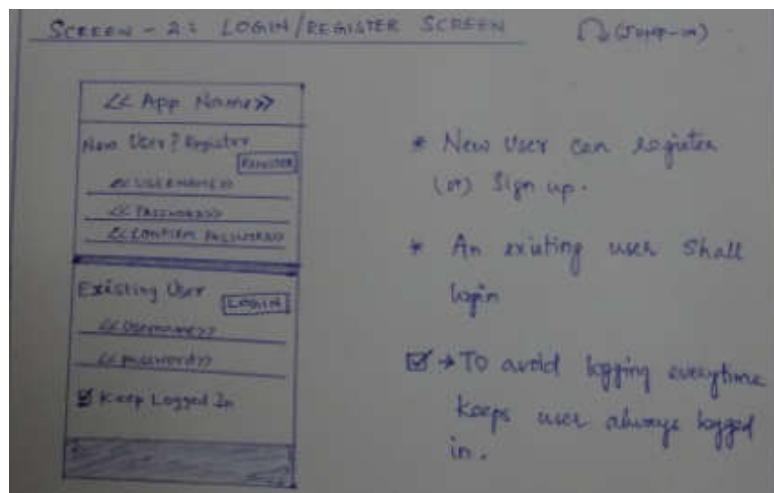 SCREEN - 2: LOGIN/REGISTER SCREEN
<< App Name>>
New User? Register
REGISTER
<< USERNAME>>
<< PASSWORD>>
<< CONFIRM PASSWORD>>
Existing User
LOGIN
<< Username>>
<< password>>
Keep Logged In
* New User can register
(or) Sign up.
* An existing user Shall
login
→ To avoid logging everytime
keeps user always logged
in.